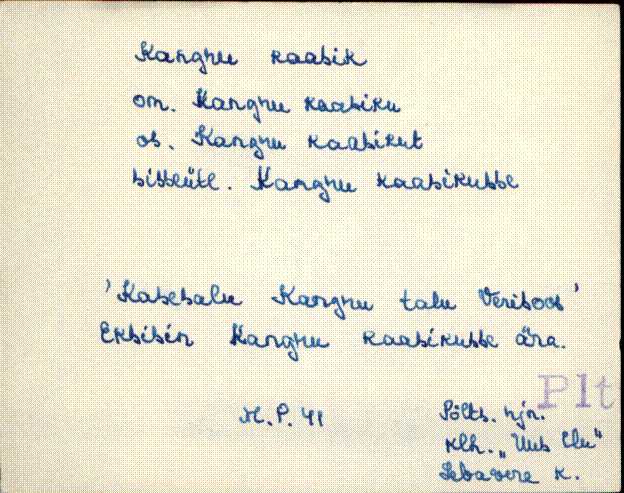 Kangru kaasik
om. Kangru kaasiku
os. Kangru kaasikut
sisseütl. Kangru kaasikusse
'Kasesalu Kangru talu Verisoos'
Eksisin Kangru kaasikusse ära.
Plt
M.P. 41
Põlts. rjn.
klh. „Uus Elu"
Lebavere k.